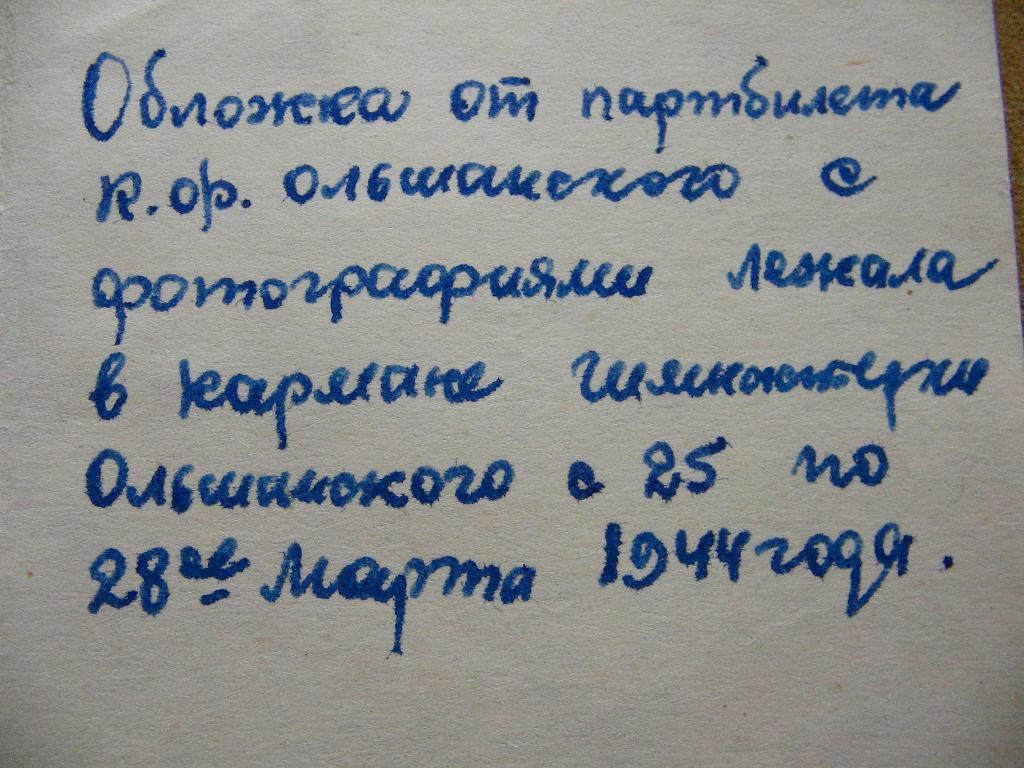 Обложка от партбилета
к.ф. Ольшанского с
фотографиями лежала
в кармане гимнастерки
Ольшанского с 25 по
28ое Марта 1944 года.